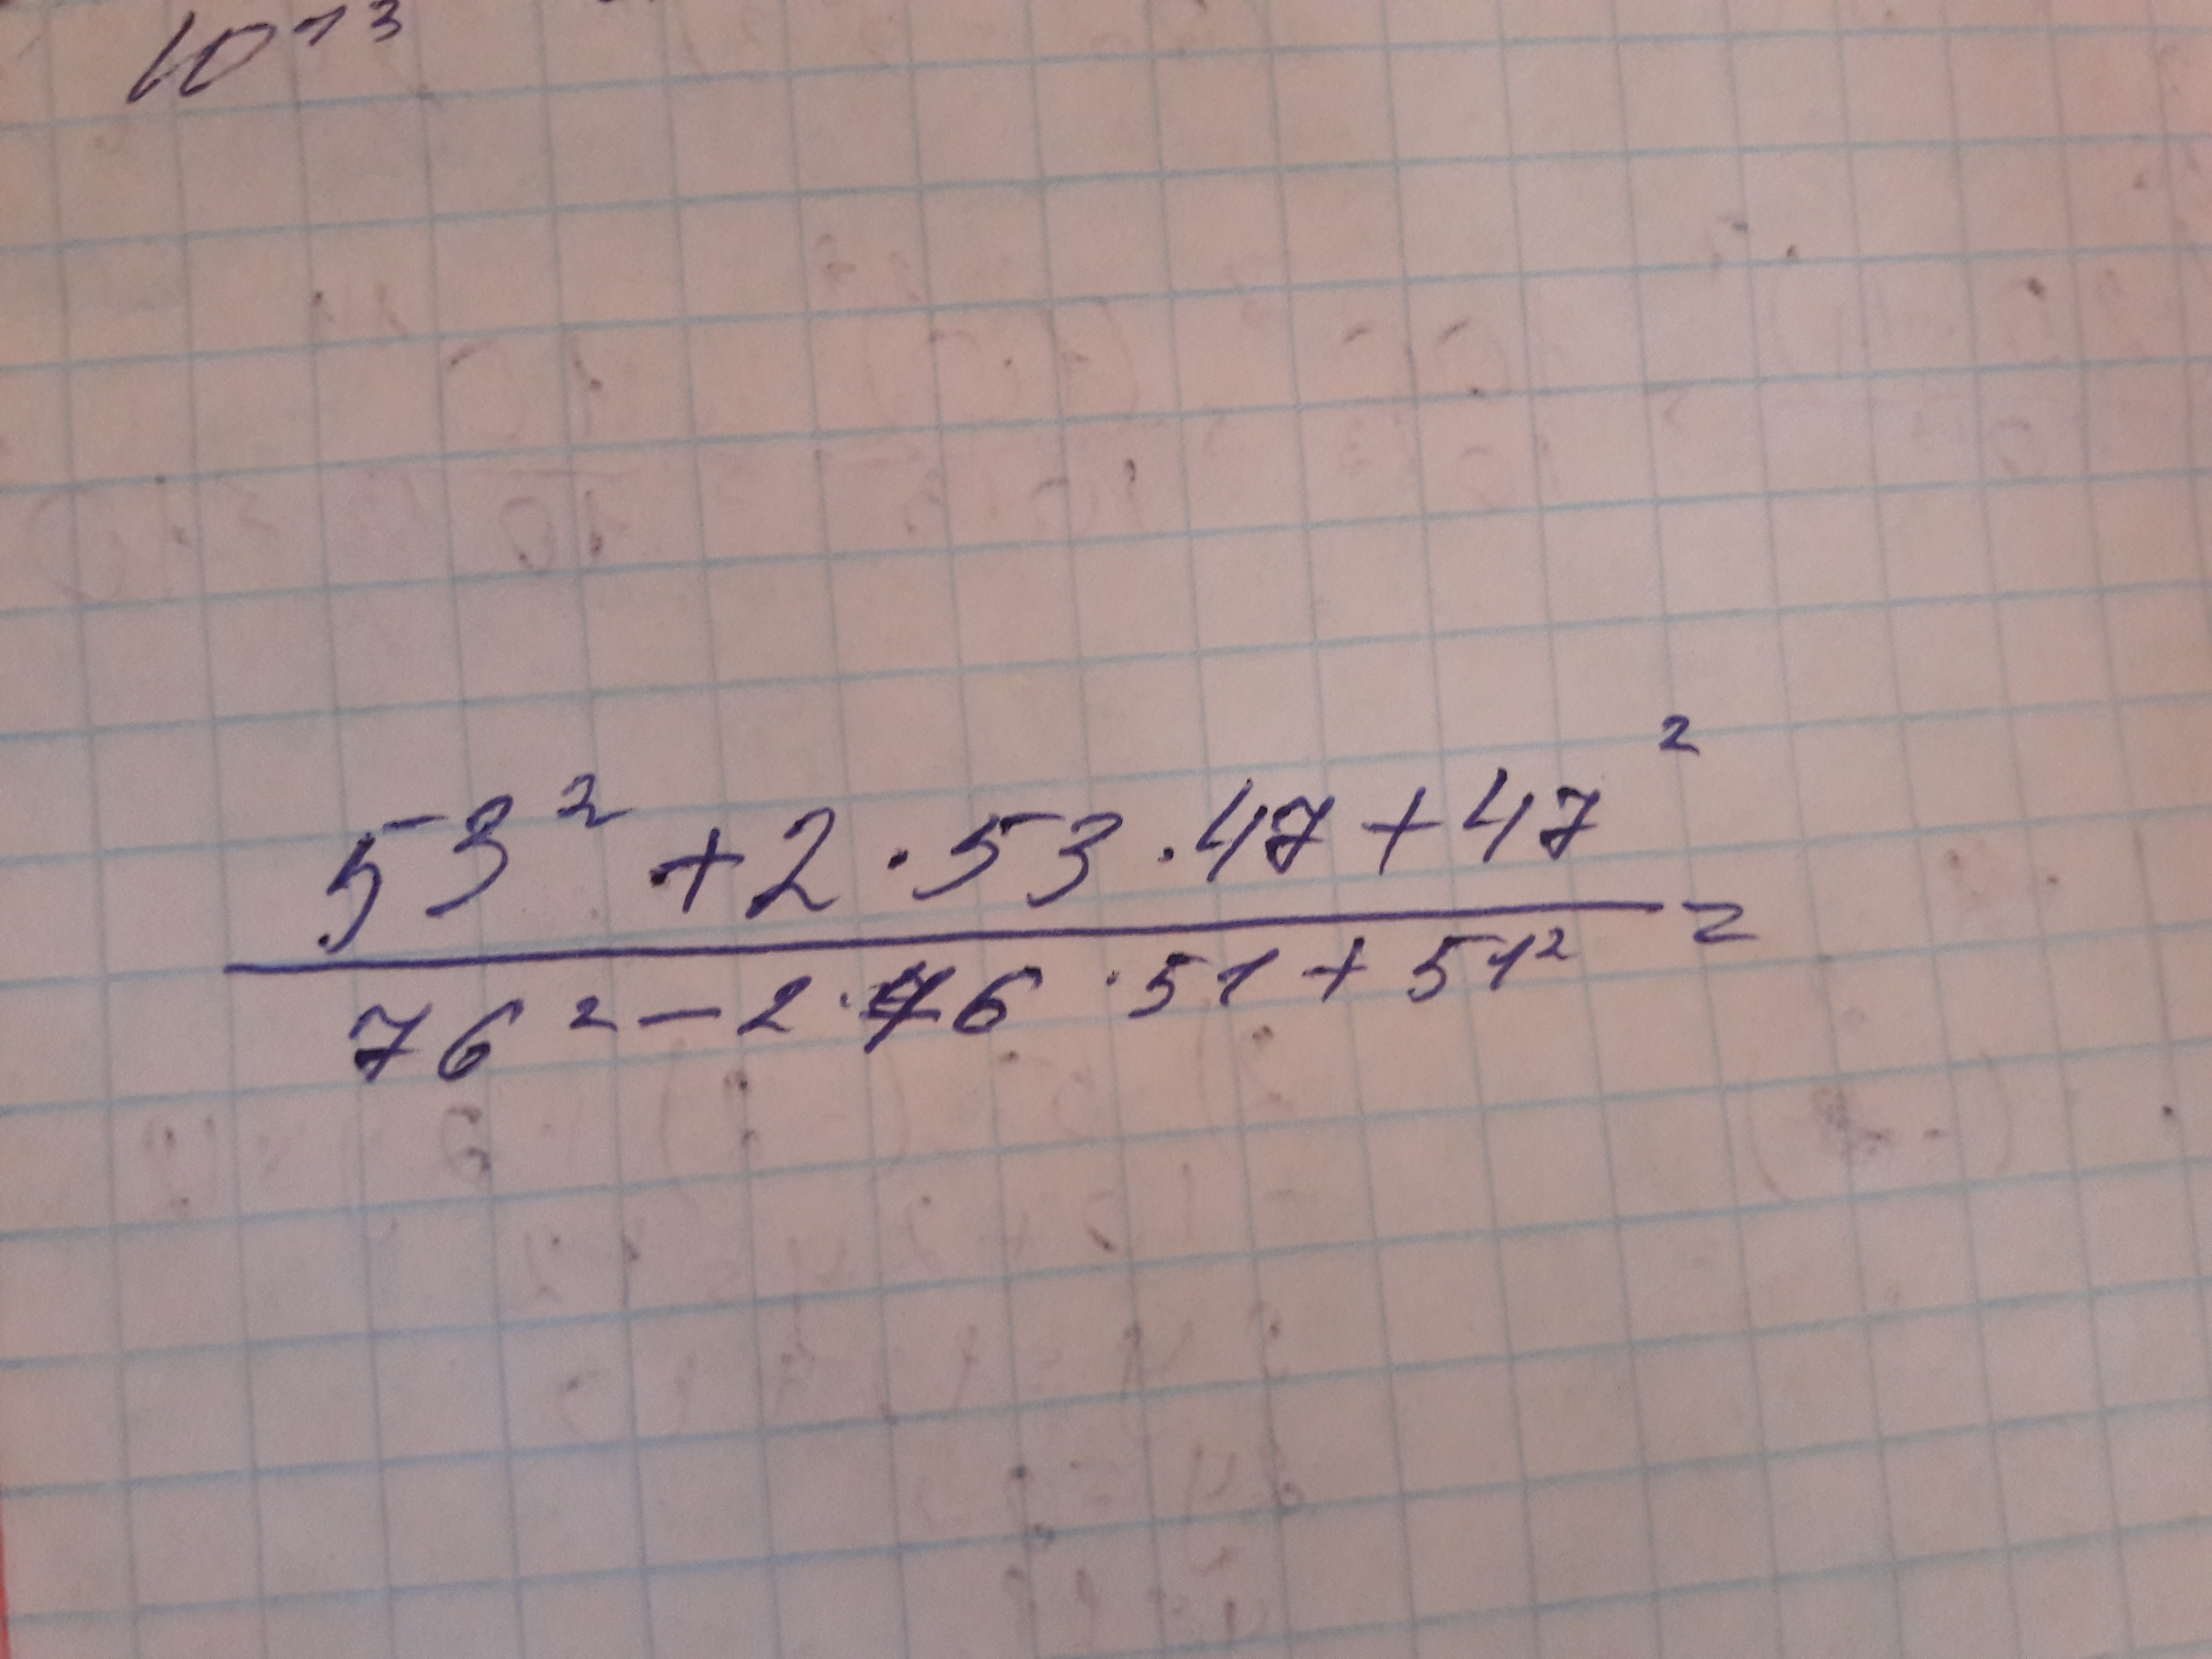 10¹³
53² + 2 · 53 · 47 + 47²
76² - 2 · 76 · 51 + 51² =